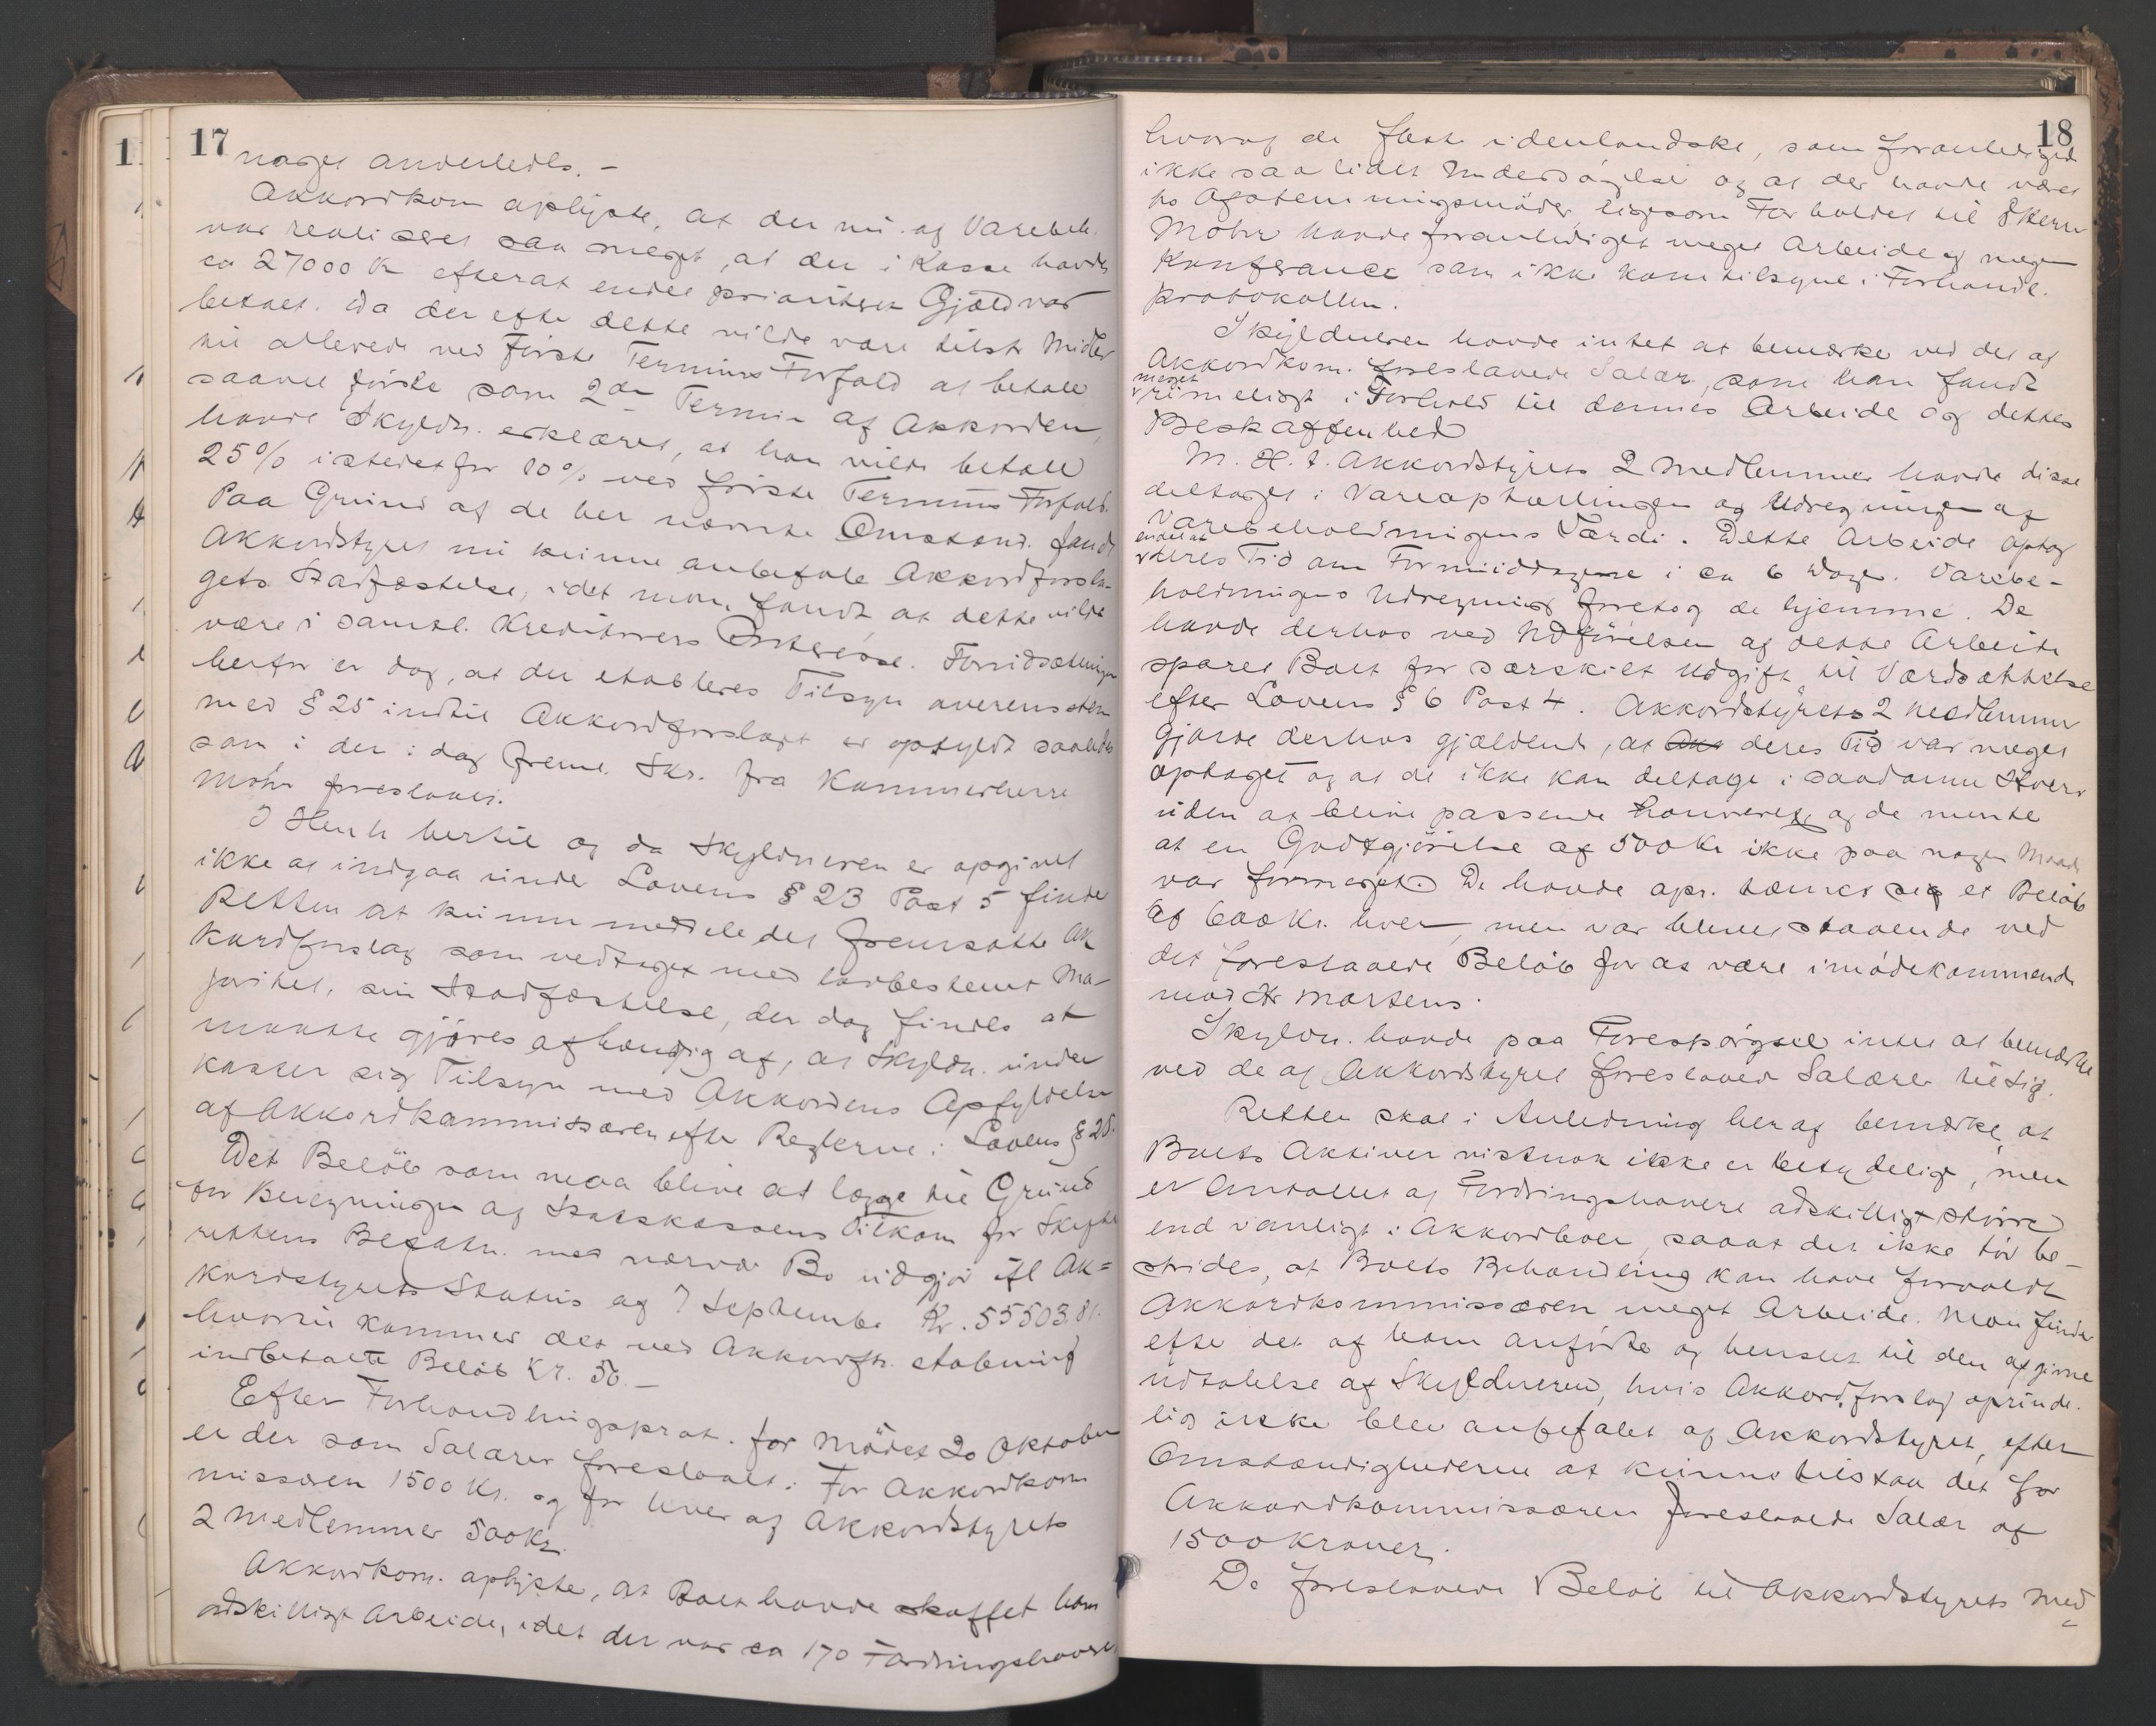 17
noget anderledes. –
Akkordkom oplyste, at der nu af Varebeh.
var realiseret saa meget, at der i Kasse havdes
ca 27000 Kr efterat endel prioriteret Gjæld var
betalt. Da der efter dette vilde være tilstr Midler
nu allerede ved første Termins Forfald at betale
saavel første som 2den Termin af Akkorden,
havde Skyldn. erklæret, at han vilde betale
25% istedetfor 10% ved første Termins Forfald.
Paa Grund af de her nævnte Omstænd. fandt
Akkordstyret nu kunne anbefale Akkordforsla-
gets Stadfæstelse, idet man fandt at dette vilde
være i samtl. Kreditorers Interesse. Forudsætningen
herfor er dog, at der etableres Tilsyn overensstem
med § 25 indtil Akkordforslaget er opfyldt saaledes
som i den i dag freml. Skr. fra Kammerherre
Mohr foreslaaet.
I Henh hertil og da Skyldneren er opgivet
ikke at indgaa under Lovens § 23 Post 5 finder
Retten at kunne meddele det fremsatte Ak
kordforslag som vedtaget med lovbestemt Ma-
joritet, sin Stadfæstelse, der dog findes at
maatte gjøres afhængig af, at Skyldn. under
kaster sig Tilsyn med Akkordens Opfyldelse
af Akkordkommissæren efter Reglerne i Lovens § 25.
Det Beløb som maa blive at lægge til Grund
for Beregningen af Statskassens Tilkom for Skifte
rettens Befatn. med nærvær Bo udgjør ifl Ak=
kordstyrets Status af 7 September Kr. 55503.81.
hvortil kommer det ved Akkordfh. aabning
indbetalte Beløb Kr. 50. –
Efter Forhandlingsprot. for Mødet 20 Oktober
er der som Salærer foreslaaet: For Akkordkom
missæren 1500 Kr. og for hver af Akkordstyrets
2 Medlemmer 500 Kr.
Akkordkom. oplyste, at Boet havde skaffet ham
adskilligt Arbeide, idet der var ca 170 Fordringshavere
18
hvoraf de flest udenlandske, som foranlediget
ikke saa liden Undersøgelse og at der havde været
to Afstemningsmøder, ligesom Forholdet til
Mohr havde foranlediget meget Arbeide og megen
Konferance som ikke kom tilsyne i Forhandl.
protokollen.
Skyldneren havde intet at bemærke ved det af
Akkordkom. foreslaaede Salær, som han fandt
meget
rimeligt i Forhold til dennes Arbeide og dettes
Beskaffenhed
M. H. t. Akkordstyrets 2 Medlemmer havde disse
deltaget i Vareoptællingen og Udregningen af
Varebeholdningens Værdi. Dette Arbeide optog
deres Tid om Formiddagene i ca 6 Dage. Varebe-
holdningens Udregning foretog de hjemme. De
havde derhos ved Udførelsen af dette Arbeide
sparet Boet for særskilt Udgift til Værdsættelse
efter Lovens § 6 Post 4. Akkordstyrets 2 Medlemmer
gjorde derhos gjældende, at deres Tid var meget
optaget og at de ikke kan deltage i saadanne Hverv
uden at blive passende honoreret og de mente
at en Godtgjørelse af 500 Kr ikke paa nogen Maade
var formeget. De havde opr. tænkt sig et Beløb
af 600 Kr. hver, men var blevet staaende ved
det foreslaaede Beløb for at være imødekommende
mod Hr Martens.
Skyldn. havde paa Forespørgsel intet at bemærke
ved de af Akkordstyret foreslaaede Salærer til sig.
Retten skal i Anledning heraf bemærke, at
Boets Aktiver vistnok ikke er betydelige, men
er Antallet af Fordringshavere adskilligt større
end vanligt i Akkordboer, saaat det ikke tør be-
strides, at Boets Behandling kan have forvoldt
Akkordkommissæren meget Arbeide. Man finder
efter det af ham anførte og henset til den afgivne
Udtalelse af Skyldneren, hvis Akkordforslag oprinde-
lig ikke blev anbefalet af Akkordstyret, efter
Omstændighederne at kunne tilstaa det for
Akkordkommissæren foreslaaede Salær af
1500 Kroner.
De foreslaaede Beløb til Akkordstyrets Med